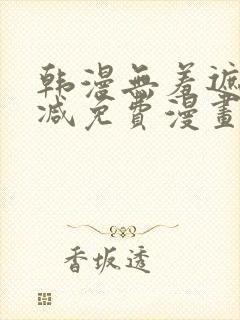 韩漫無羞遮
减免費漫畫
香坂透